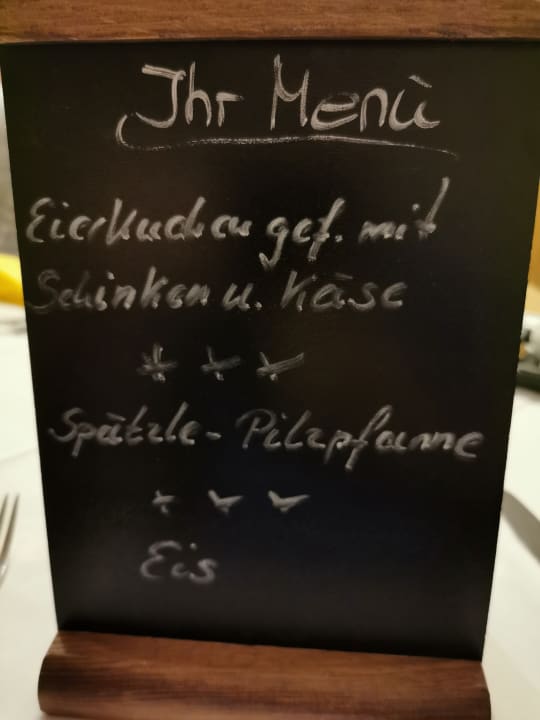 Ihr Menü
Eierkuchen gef. mit
Schinken u. Käse
* * *
Spätzle - Pilzpfanne
* * *
Eis